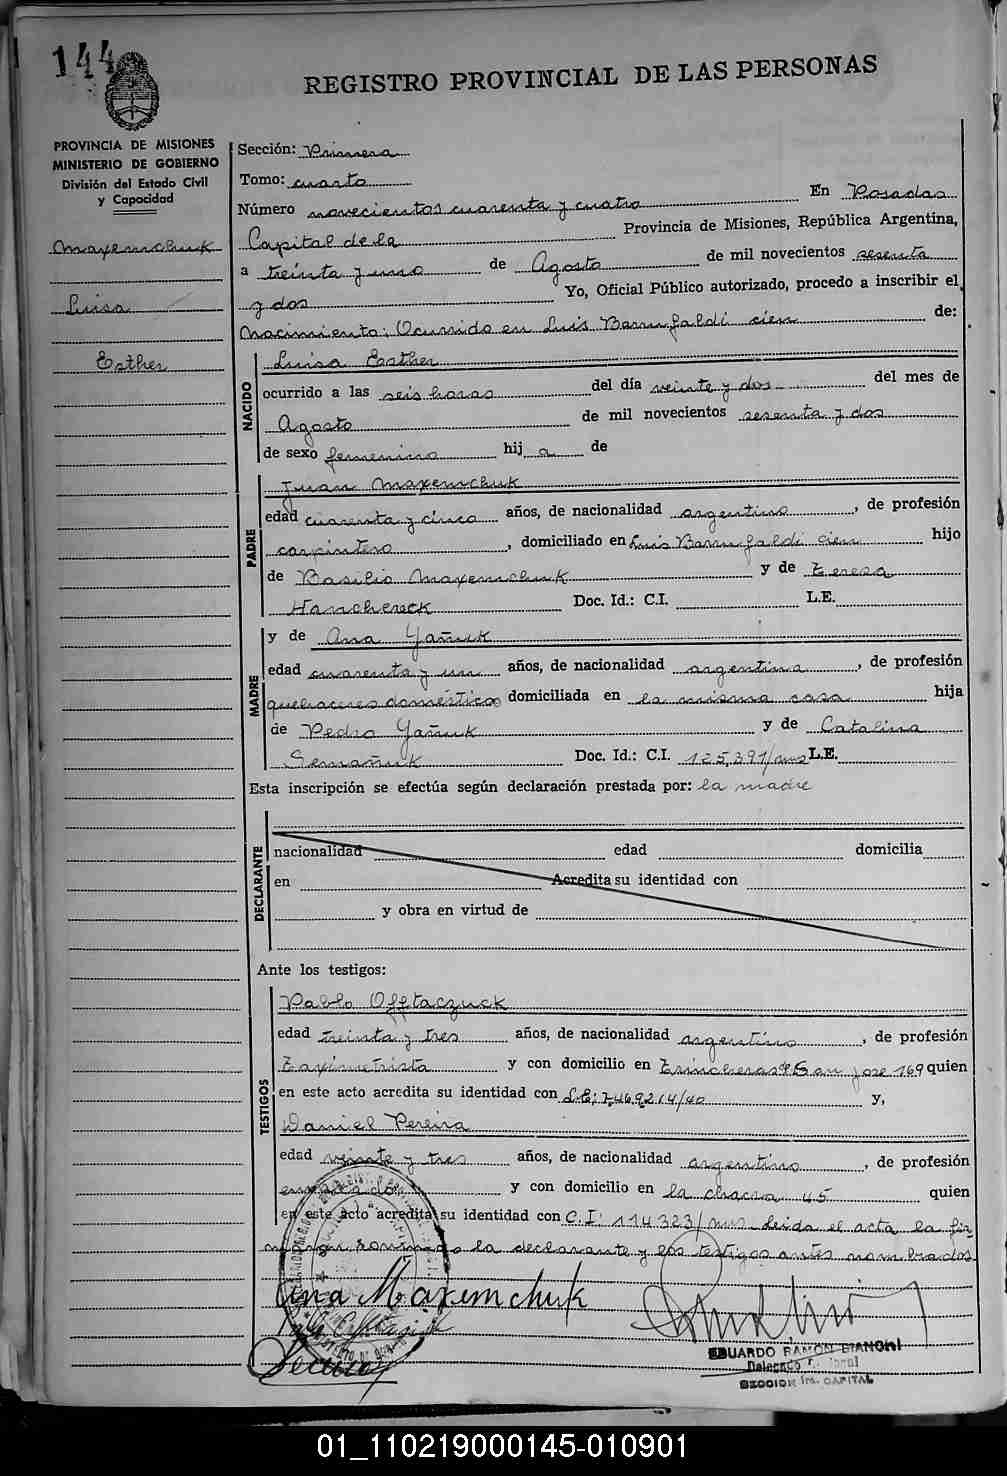 144
REGISTRO PROVINCIAL DE LAS PERSONAS
PROVINCIA DE MISIONES
MINISTERIO DE GOBIERNO
División del Estado Civil
y Capacidad
Maxemchuk
Luisa
Esther
Sección: Primera
Tomo: cuarto
Número novecientos cuarenta y cuatro En Posadas
Capital de la Provincia de Misiones, República Argentina,
a treinta y uno de Agosto de mil novecientos sesenta
y dos Yo, Oficial Público autorizado, procedo a inscribir el
Nacimiento: Ocurrido en Luis Barrufaldi cien de:
NACIDO
Luisa Esther
ocurrido a las seis horas del día veinte y dos del mes de
Agosto de mil novecientos sesenta y dos
de sexo femenino hij a de
PADRE
Juan Maxemchuk
edad cuarenta y cinco años, de nacionalidad argentino, de profesión
carpintero, domiciliado en Luis Barrufaldi cien hijo
de Basilio Maxemchuk y de Teresa
Hanchereck Doc. Id.: C.I. L.E.
MADRE
y de Ana Yañuk
edad cuarenta y un años, de nacionalidad argentina, de profesión
quehaceres domésticos domiciliada en la misma casa hija
de Pedro Yañuk y de Catalina
Semañuk Doc. Id.: C.I. 125,391/mns L.E.
Esta inscripción se efectúa según declaración prestada por: la madre
DECLARANTE
nacionalidad edad domicilia
en Acredita su identidad con
y obra en virtud de
Ante los testigos:
TESTIGOS
Pablo Offtaczuck
edad treinta y tres años, de nacionalidad argentino, de profesión
Taximetrista y con domicilio en Trincheras de San Jose 169 quien
en este acto acredita su identidad con L.E: 7,469214/40 y,
Daniel Pereira
edad veinte y tres años, de nacionalidad argentino, de profesión
empleado y con domicilio en la chacra 45 quien
en este acto acredita su identidad con C.I: 114.323/mns- Leida el acta la fir-
man conmigo la declarante y los testigos antes nombrados
Ana Maxemchuk
EDUARDO RAMON BIANCHI
Delegado
SECCION 1ra. CAPITAL
01_110219000145-010901